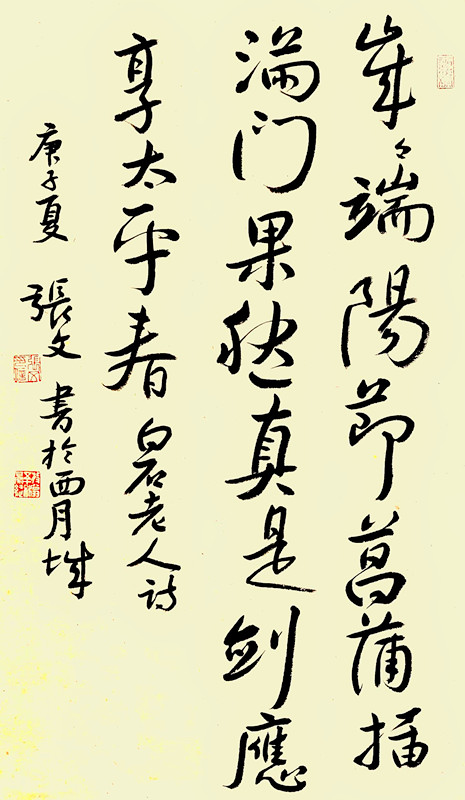 歲々端陽節菖蒲插
滿門果然真是劍應
享太平春 白石老人詩
庚子夏 張文 書於西月城